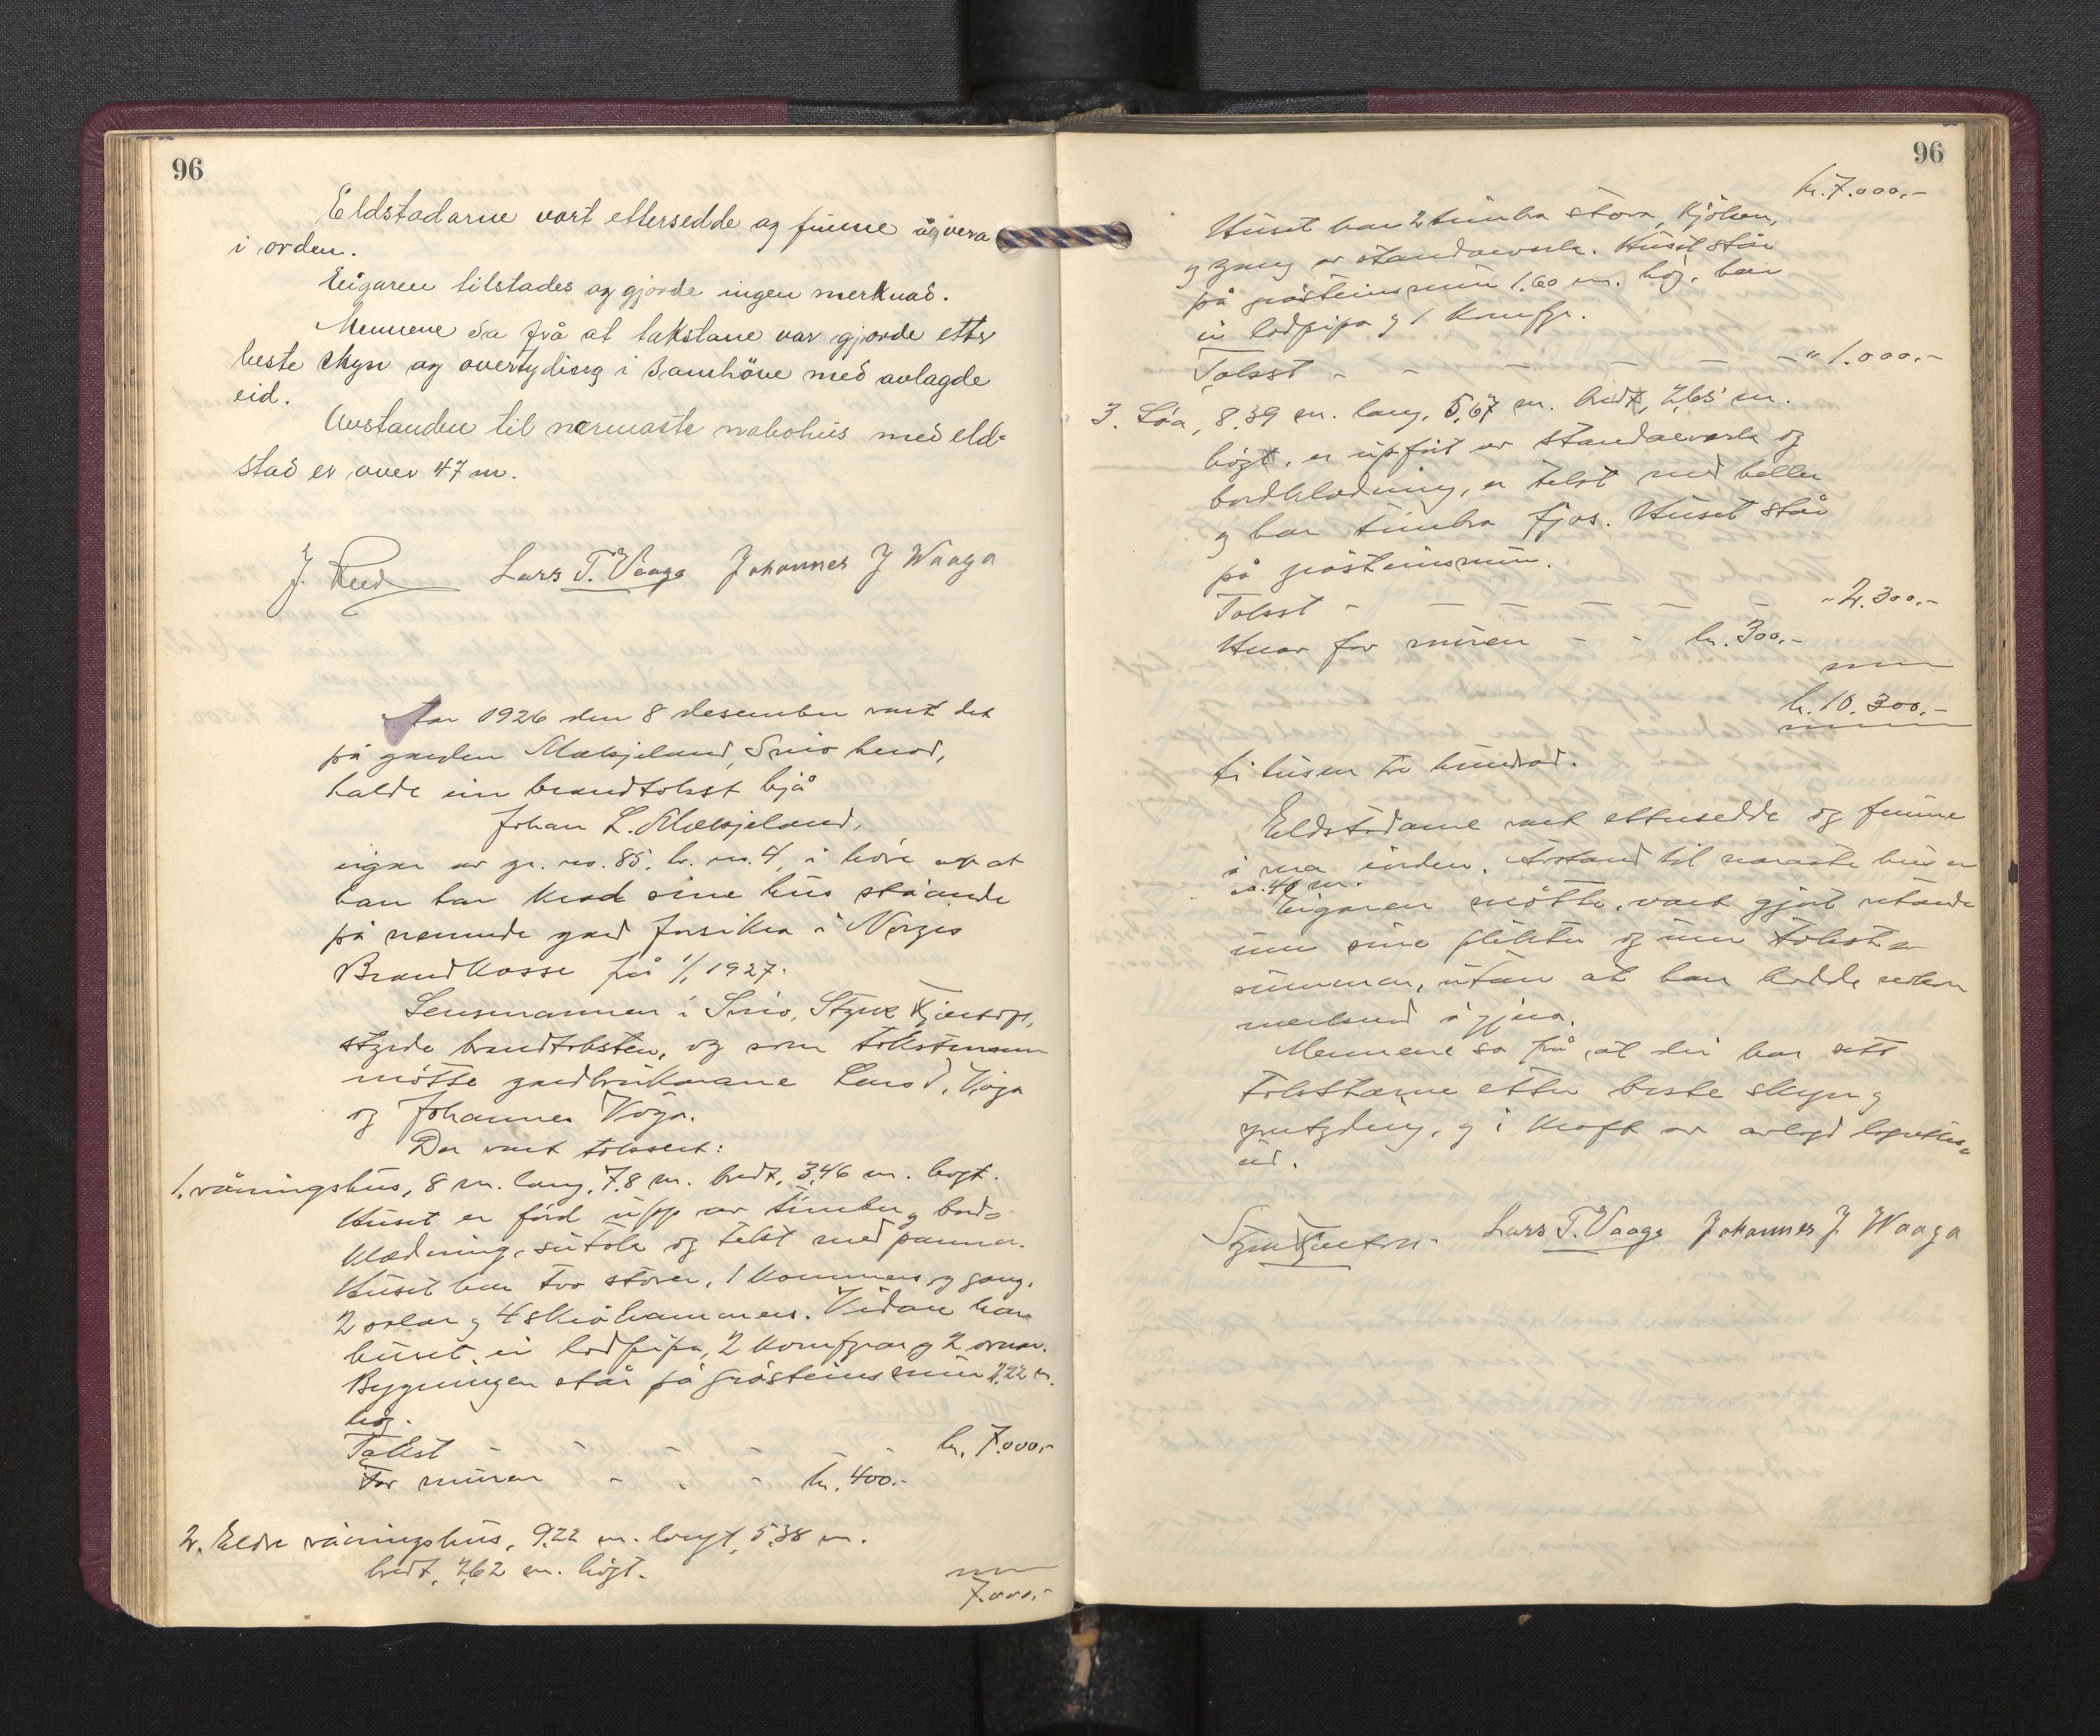 96
Eldstadarne vart ettersedde og funne å vera
i orden.
Eigaren tilstades og gjorde ingen merknad.
Mennene sa frå at takstane var gjorde etter
beste skyn og overtyding i samhöve med avlagde
eid.
Avstanden til nærmaste nabohus med eld-
stad er over 47 m.
Lars T. Vaage Johannes J Waaga
År 1926 den 8 desember vart det
på garden Mæhjeland, herad,
halde ein brandtakst hjå
Johan L. Mæhjeland,
eigar av gr. no. 85, br. no. 4, i höve at
han har kravd sine hus ståande
på nemnde gard forsikra i Norges
Brandkasse frå 1/1 1927.
Lensmannen i
styrde brandtaksten, og som takstmenn
møtte gardbrukarane Lars T. Våga
og Johannes Våga.
Der vart taksert:
1. våningshus, 8 m. lang, 7,8 m. bredt, 3,46 m. högt.
Huset er förd upp av timber og bord-
klædning, sutak og tekt med pannor.
Huset har tvo stover, 1 kammers og gang,
2 salar og 4 skråkammers. Vidare har
huset ei lodpipa, 2 komfyrar og 2 omnar.
Bygningen står på gråsteinsmur 2,22 m.
høg.
Takst - - - - - kr. 7.000,-
For muren - - - kr. 400.-
2. Eldre våningshus, 9,22 m. langt, 5,38 m.
bredt, 2,62 m. högt.
7.000,-
96
kr. 7.000,-
Huset har 2 timbra stova, kjöken,
og gang av standarverk. Huset står
på gråsteinsmur 1,60 m. høg, har
ei lodpipa og 1 komfyr.
Takst - - - - - " 1.000,-
3. Löa, 8,39 m. lang, 5,67 m. bredt, 2,65 m.
högt, er uppfört av standarverk og
bordklædning, er tekt med heller
og har timbra fjos. Huset står
på gråsteinsmur.
Takst - - - - - - " 2.300,-
Herav for muren - - kr. 300,-
kr. 10.300,-
ti tusen tri hundrad.
Eldstadarne vart ettersedde og funne
å vera i orden. Avstand til næraste hus er
ca. 40 m.
Eigaren møtte, vart gjort
um sine plikter og um takst-
summen, utan at han hadde noken
merknad å gjera.
Mennene sa frå at dei har sett
takstarne etter beste skyn og
yvertyding, og i kraft av avlagd
eid.
Lars T. Vaage Johannes J. Waaga